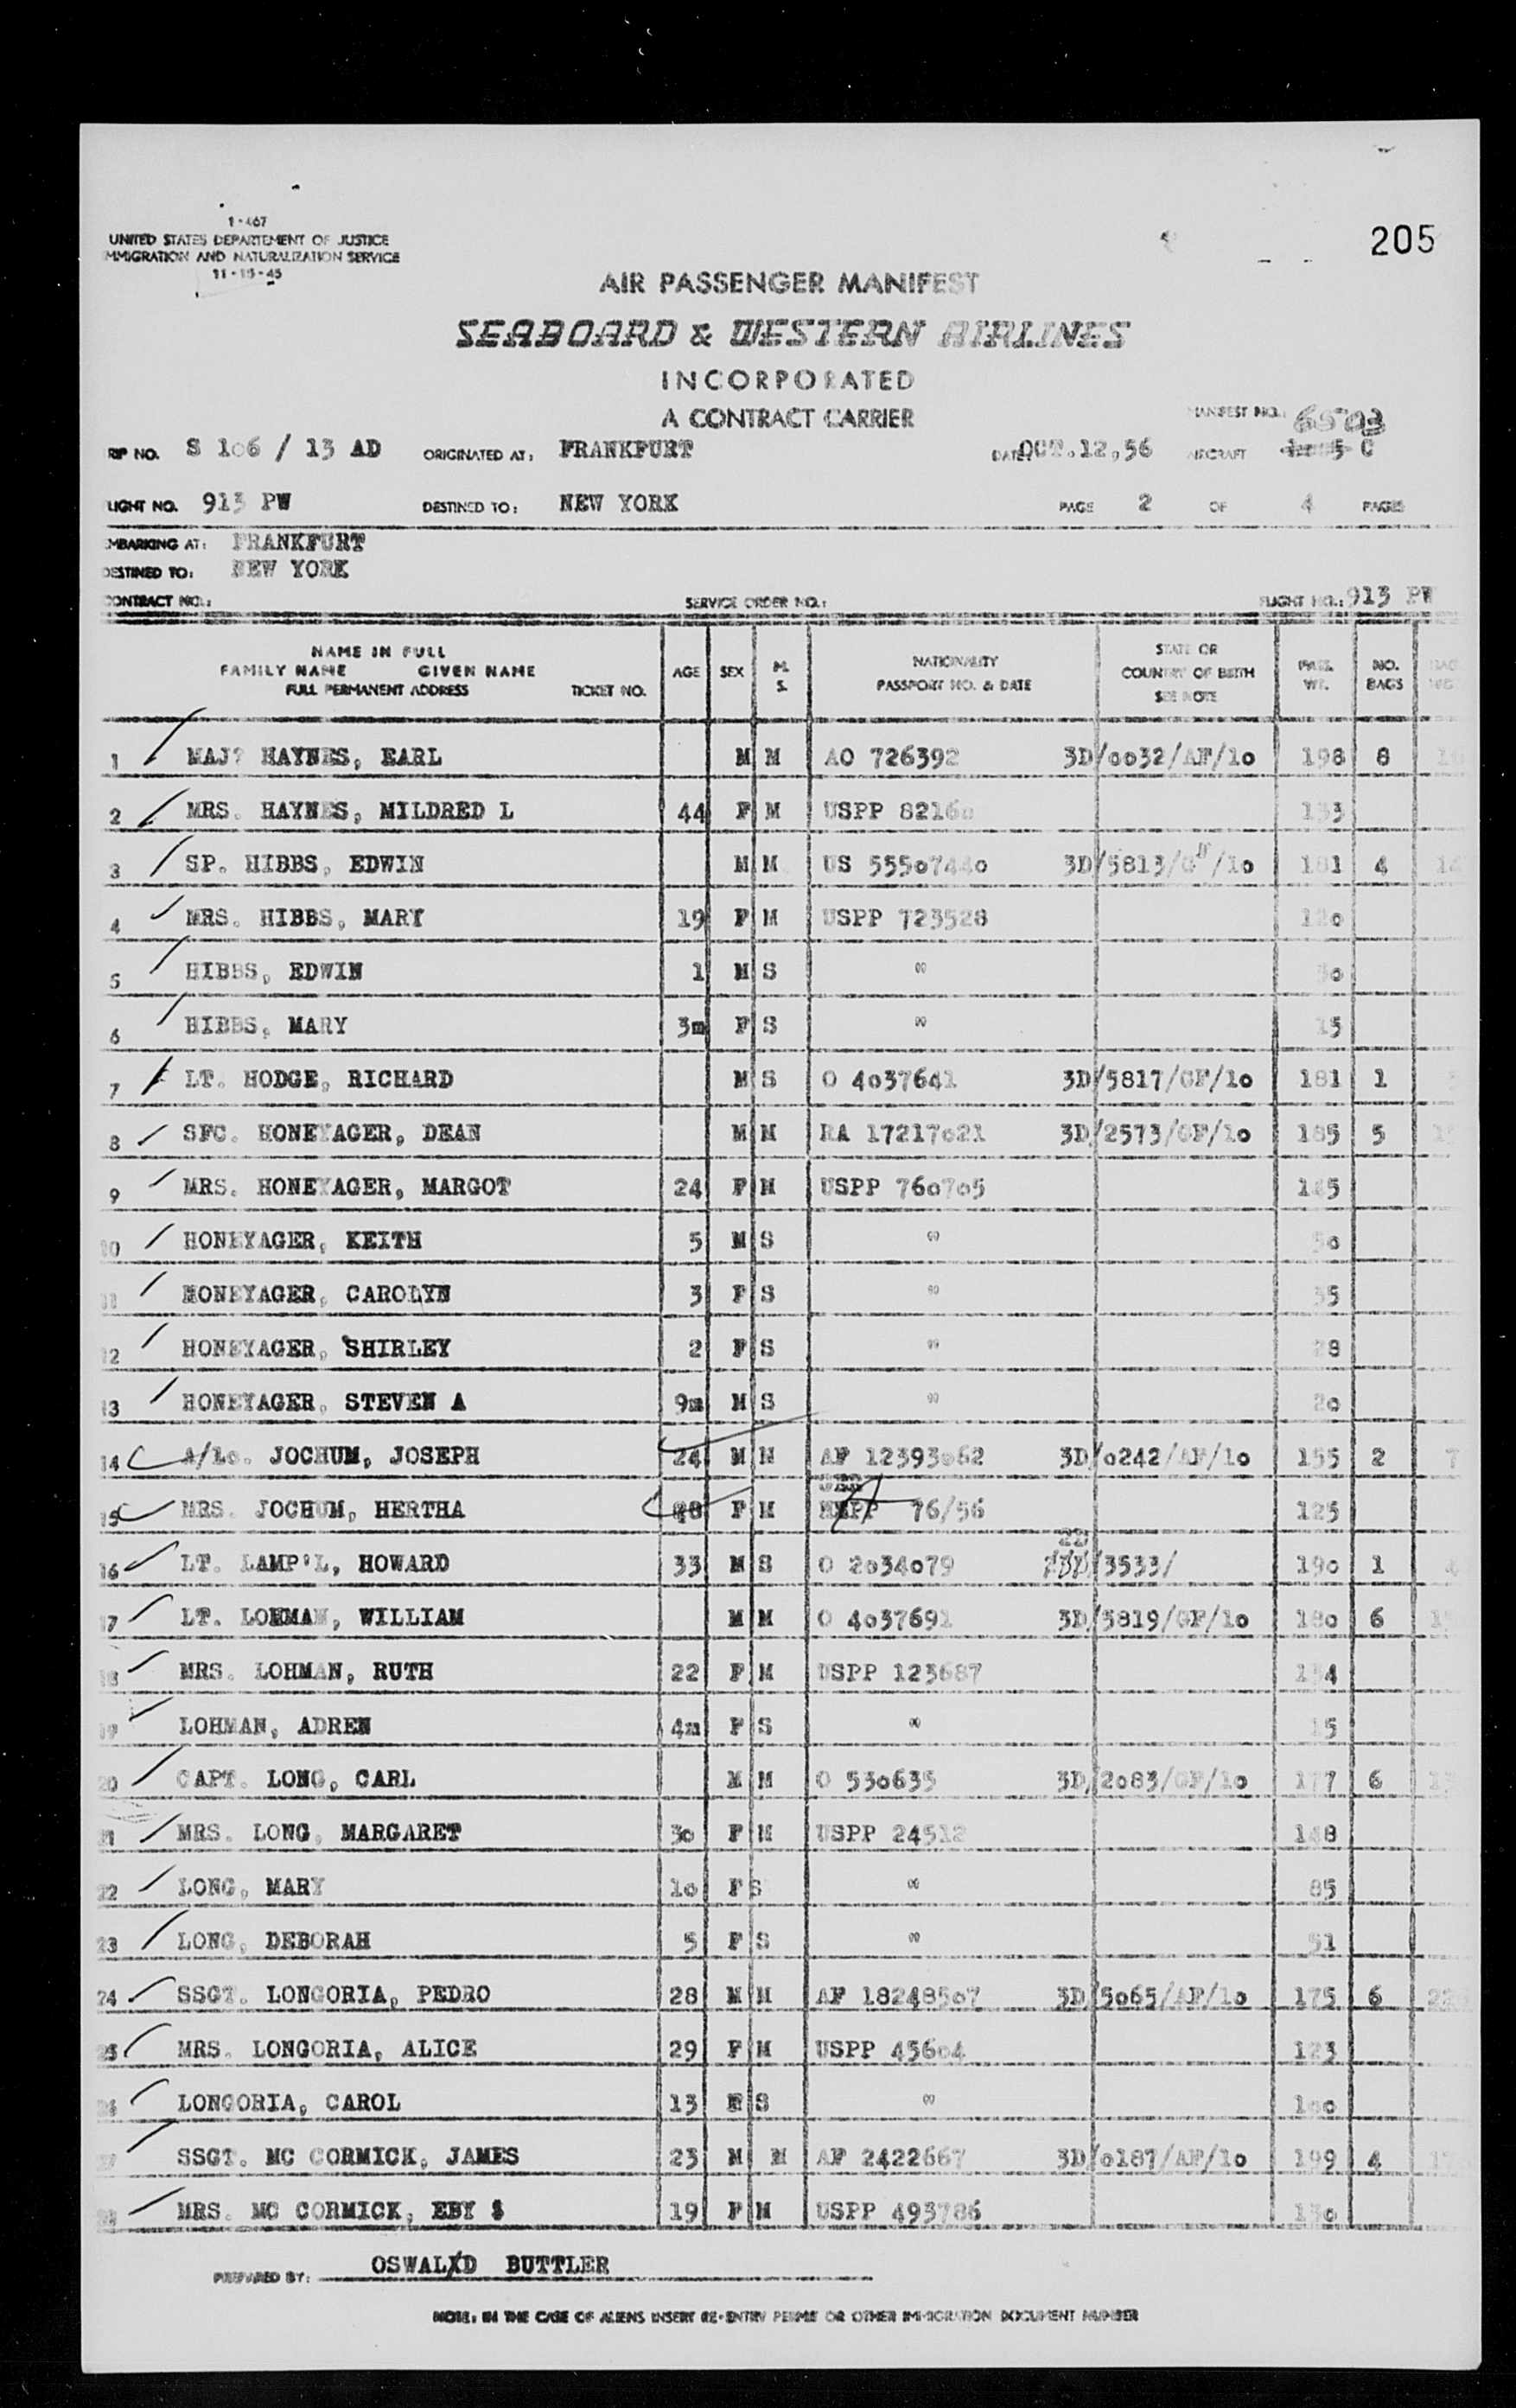 205
1-467
UNITED STATES DEPARTEMENT OF JUSTICE
MMIGRATION AND NATURALIZATION SERVICE
11-15-45
AIR PASSENGER MANIFEST
SEABOARD & WESTERN AIRLINES
INCORPORATED
A CONTRACT CARRIER
MANIFEST NO.:
RIP NO. S 106 / 13 AD ORIGINATED AT: FRANKFURT DATE: OCT.12,56 AIRCRAFT C
LIGHT NO. 913 PW DESTINED TO: NEW YORK PAGE 2 OF 4 PAGES
MBARKING AT: FRANKFURT
DESTINED TO: NEW YORK
CONTRACT NO.: SERVICE ORDER NO.: FLIGHT NO.: 913 PW
NAME IN FULL
FAMILY NAME GIVEN NAME
FULL PERMANENT ADDRESS TICKET NO. AGE SEX M. S. NATIONALITY PASSPORT NO. & DATE STATE OR COUNTRY OF BIRTH SEE NOTE PASS. WT. NO. BAGS
1 MAJ? HAYNES, EARL M M AO 726392 3D/0032/AF/10 198 8
2 MRS. HAYNES, MILDRED L 44 F M USPP 82160 133
3 SP. HIBBS, EDWIN M M US 55507440 3D/5813/GF/10 181 4
4 MRS. HIBBS, MARY 19 F M USPP 723528 120
5 HIBBS, EDWIN 1 M S " 30
6 HIBBS, MARY 3m F S " 15
7 LT. HODGE, RICHARD M S O 4037641 3D/5817/GF/10 181 1
8 SFC. HONEYAGER, DEAN M M RA 17217021 3D/2573/GF/10 185 5
9 MRS. HONEYAGER, MARGOT 24 F M USPP 760705 145
10 HONEYAGER, KEITH 5 M S " 50
11 HONEYAGER, CAROLYN 3 F S " 35
12 HONEYAGER, SHIRLEY 2 F S " 28
13 HONEYAGER, STEVEN A 9m M S " 20
14 A/1c. JOCHUM, JOSEPH 24 M M AF 12393062 3D/0242/AF/10 155 2
15 MRS. JOCHUM, HERTHA F M 76/56 125
16 LT. LAMP'L, HOWARD 33 M S O 2034079 22 /3533/ 190 1
17 LT. LOHMAN, WILLIAM M M O 4037691 3D/5819/GF/10 180 6
18 MRS. LOHMAN, RUTH 22 F M USPP 123687 134
19 LOHMAN, ADREN 4m F S " 15
20 CAPT. LONG, CARL M M O 530635 3D/2083/GF/10 177 6
21 MRS. LONG, MARGARET 30 F M USPP 24512 148
22 LONG, MARY 10 F S " 85
23 LONG, DEBORAH 5 F S " 51
24 SSGT. LONGORIA, PEDRO 28 M M AF 18248507 3D/5065/AF/10 175 6
25 MRS. LONGORIA, ALICE 29 F M USPP 45604 123
26 LONGORIA, CAROL 13 F S " 100
27 SSGT. MC CORMICK, JAMES 23 M M AF 2422667 3D/0187/AF/10 199 4
28 MRS. MC CORMICK, EBY S 19 F M USPP 493786 130
PREPARED BY: OSWALD BUTTLER
NOTE: IN THE CASE OF ALIENS INSERT RE-ENTRY PERMIT OR OTHER IMMIGRATION DOCUMENT NUMBER